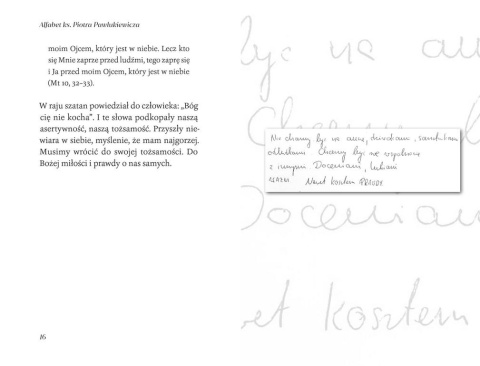 Alfabet ks. Piotra Pawlukiewicza
moim Ojcem, który jest w niebie. Lecz kto
się Mnie zaprze przed ludźmi, tego zaprę się
i Ja przed moim Ojcem, który jest w niebie
(Mt 10, 32–33).
W raju szatan powiedział do człowieka: „Bóg
cię nie kocha”. I te słowa podkopały naszą
asertywność, naszą tożsamość. Przyszły nie-
wiara w siebie, myślenie, że mam najgorzej.
Musimy wrócić do swojej tożsamości. Do
Bożej miłości i prawdy o nas samych.
16
być
Doceniani
kosztem
Nie chcemy być
Chcemy być we wspólnocie
z innymi Doceniani, lubiani
RAZEM Nawet kosztem PRAWDY